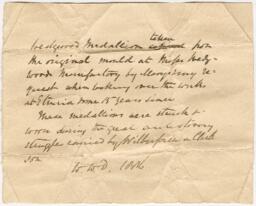 Wedgwood Medallion taken from
the original mould at Messrs Wedg-
woods Manufactory by
quest when looking over the works
at Etruria some 15 years since
These medallions were struck &
worn during the great anti slavery
struggle carried by Wilberforce & Clark
son.